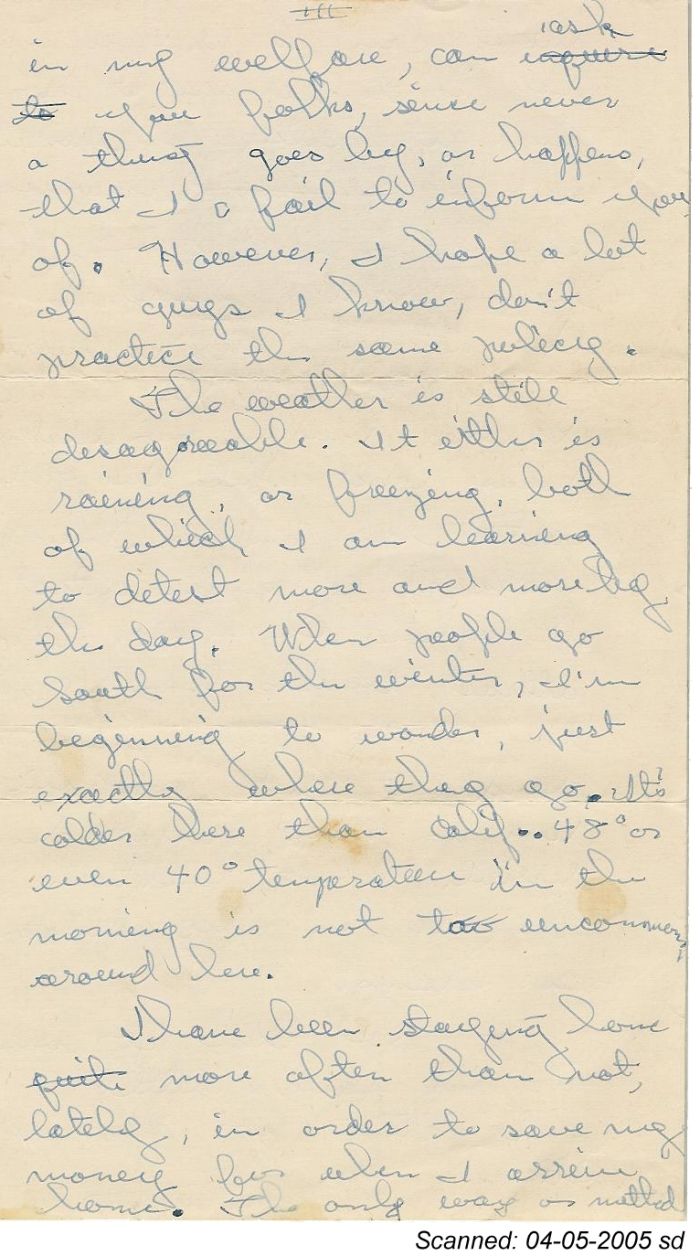 III
ask
in my welfare, can inquire
to you folks, since never
a thing goes by, or happens,
that I a fail to inform you
of. However, I hope a lot
of guys I know, don't
practice the same policy.
The weather is still
desagreeable. It either is
raining, or freezing, both
of which I am learning
to detest more and more by
the day. When people go
South for the winter, I'm
beginning to wonder, just
exactly where they go. It's
colder here than Calif.. 48° or
even 40° temperature in the
morning is not too uncommon,
around here.
I have been staying home
quite more often than not,
lately, in order to save my
money for when I arrive
home. The only way or method
Scanned: 04-05-2005 sd